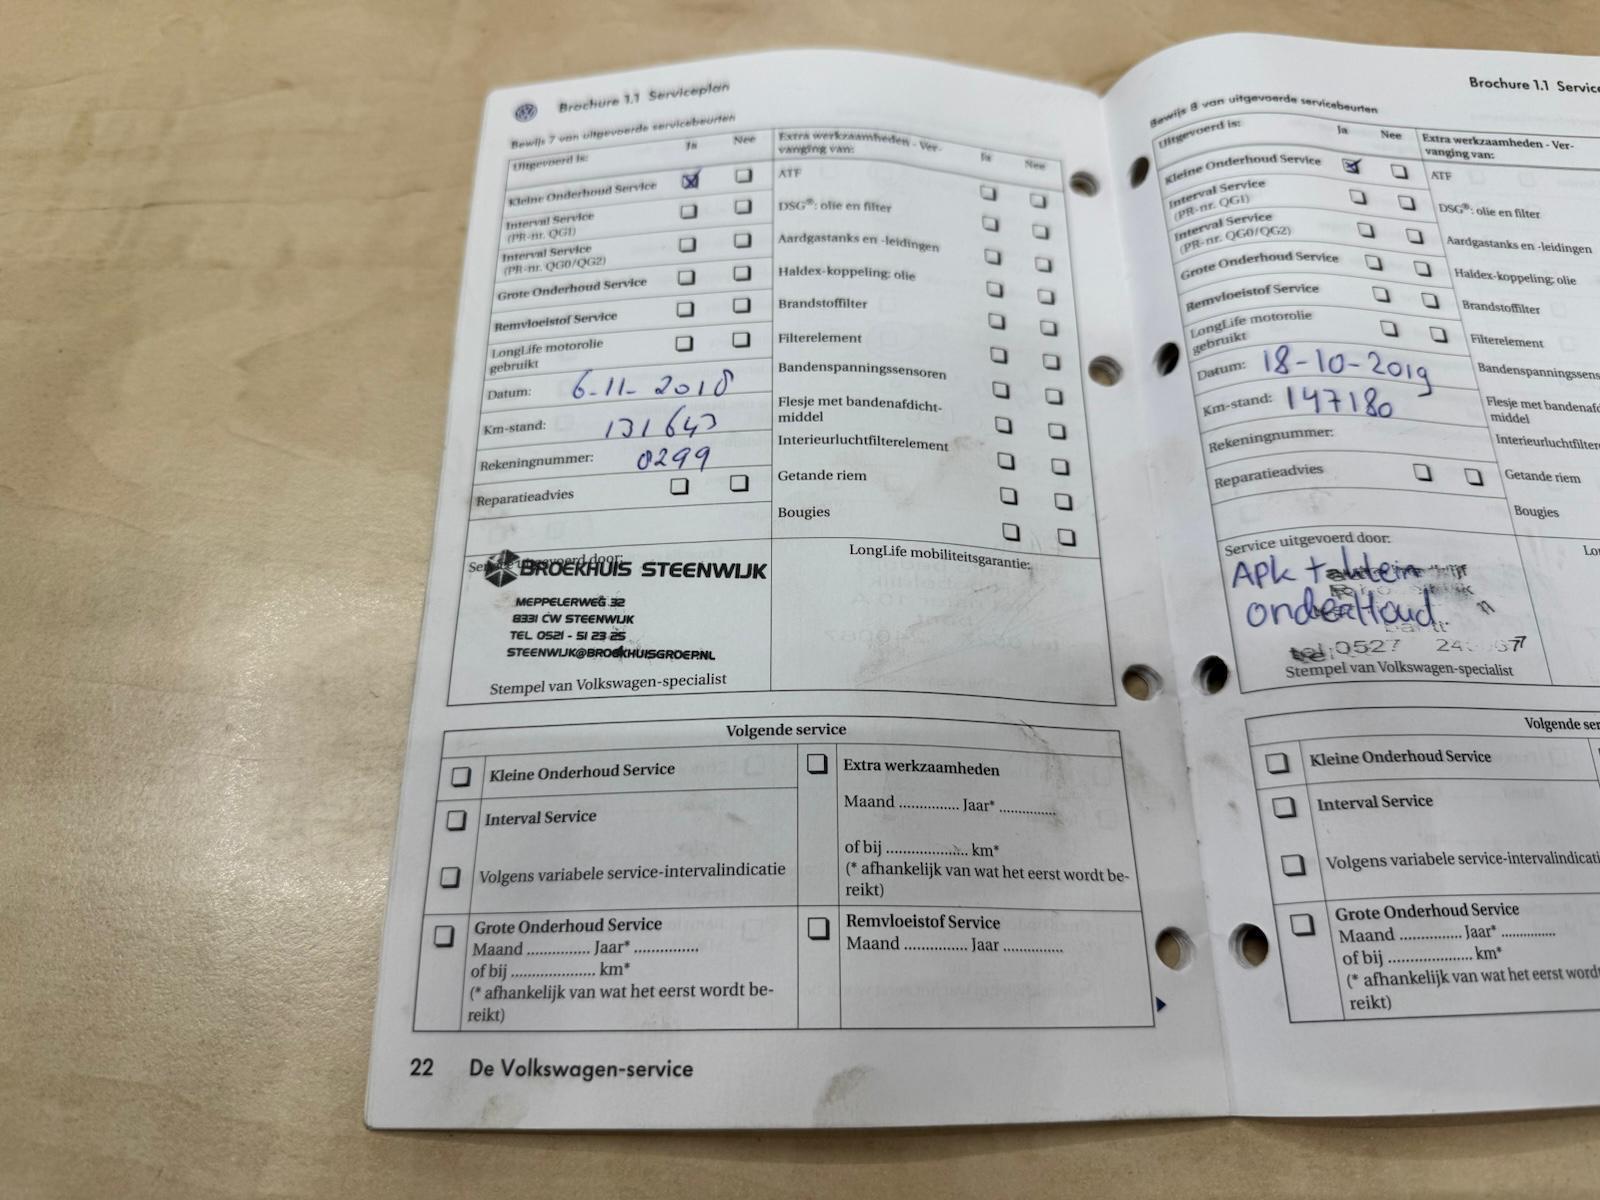 Brochure 1.1 Serviceplan
Bewijs 7 van uitgevoerde servicebeurten
Uitgevoerd is:
Ja
Nee
Kleine Onderhoud Service
Interval Service
(PR-nr. QG1)
Interval Service
(PR-nr. QG0/QG2)
Grote Onderhoud Service
Remvloeistof Service
LongLife motorolie
gebruikt
Datum: 6-11-2018
Km-stand: 131643
Rekeningnummer: 0299
Reparatieadvies
Extra werkzaamheden - Ver-
vanging van:
Ja
Nee
ATF
DSG®: olie en filter
Aardgastanks en -leidingen
Haldex-koppeling: olie
Brandstoffilter
Filterelement
Bandenspanningssensoren
Flesje met bandenafdicht-
middel
Interieurluchtfilterelement
Getande riem
Bougies
Service uitgevoerd door:
BROEKHUIS STEENWIJK
MEPPELERWEG 32
8331 CW STEENWIJK
TEL 0521 - 51 23 25
STEENWIJK@BROEKHUISGROEP.NL
Stempel van Volkswagen-specialist
LongLife mobiliteitsgarantie:
Volgende service
Kleine Onderhoud Service
Interval Service
Volgens variabele service-intervalindicatie
Grote Onderhoud Service
Maand ............. Jaar* .............
of bij .................... km*
(* afhankelijk van wat het eerst wordt be-
reikt)
Extra werkzaamheden
Maand ............. Jaar* .............
of bij .................... km*
(* afhankelijk van wat het eerst wordt be-
reikt)
Remvloeistof Service
Maand ............. Jaar .............
22 De Volkswagen-service
Brochure 1.1 Service
Bewijs 8 van uitgevoerde servicebeurten
Uitgevoerd is:
Ja
Nee
Kleine Onderhoud Service
Interval Service
(PR-nr. QG1)
Interval Service
(PR-nr. QG0/QG2)
Grote Onderhoud Service
Remvloeistof Service
LongLife motorolie
gebruikt
Datum: 18-10-2019
Km-stand: 147180
Rekeningnummer:
Reparatieadvies
Extra werkzaamheden - Ver-
vanging van:
ATF
DSG®: olie en filter
Aardgastanks en -leidingen
Haldex-koppeling: olie
Brandstoffilter
Filterelement
Bandenspanningssens
Flesje met bandenafd
middel
Interieurluchtfiltere
Getande riem
Bougies
Service uitgevoerd door:
Apk +
onderHoud
tel:0527
Stempel van Volkswagen-specialist
Lo
Volgende ser
Kleine Onderhoud Service
Interval Service
Volgens variabele service-intervalindicati
Grote Onderhoud Service
Maand ............. Jaar* .............
of bij .................... km*
(* afhankelijk van wat het eerst wordt
reikt)